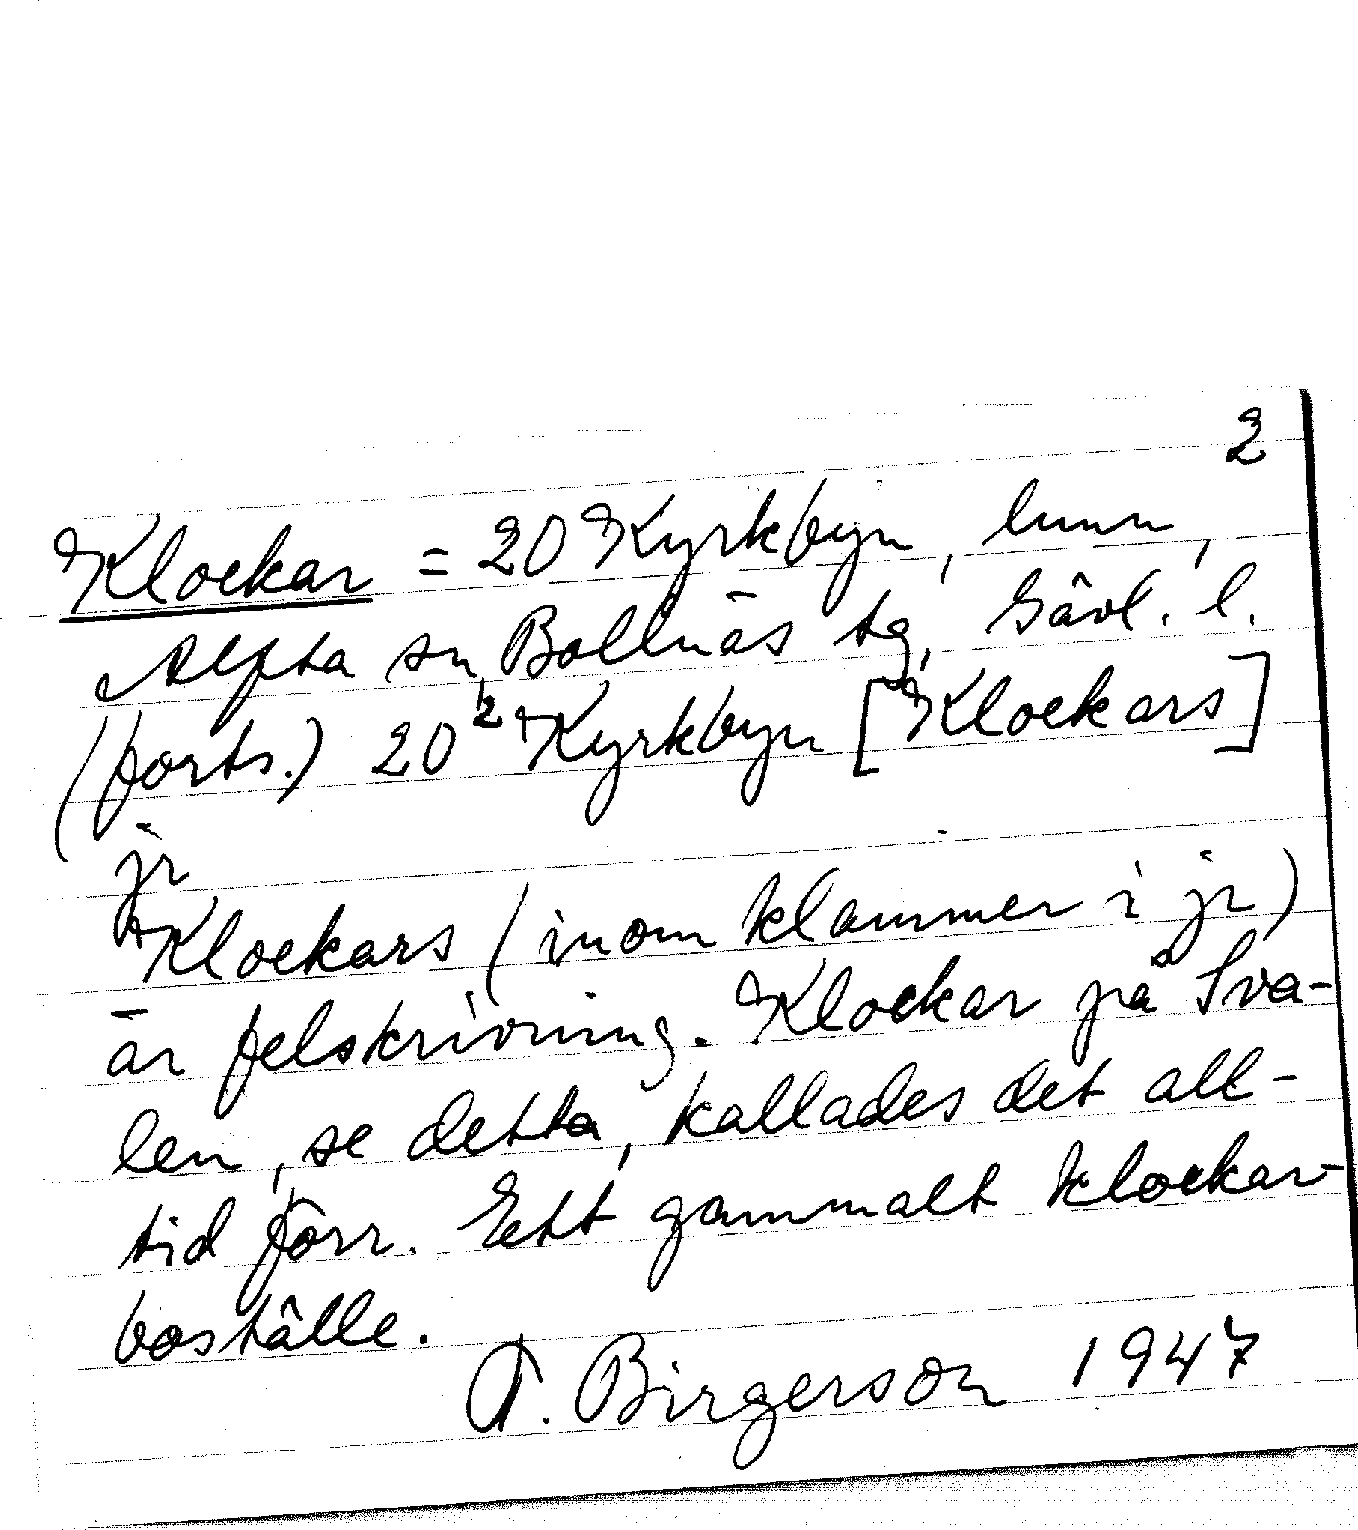 2
Klockar = 20 Kyrkbyn, hmn,
Alfta sn, Bollnäs tg, Gävl. l.
(forts.) 20² Kyrkbyn [Klockars]
jr
Klockars (inom klammer i jr)
är felskrivning. Klockar på Sva-
len, se detta, kallades det all-
tid förr. Ett gammalt klockar-
boställe.
T. Birgerson 1947